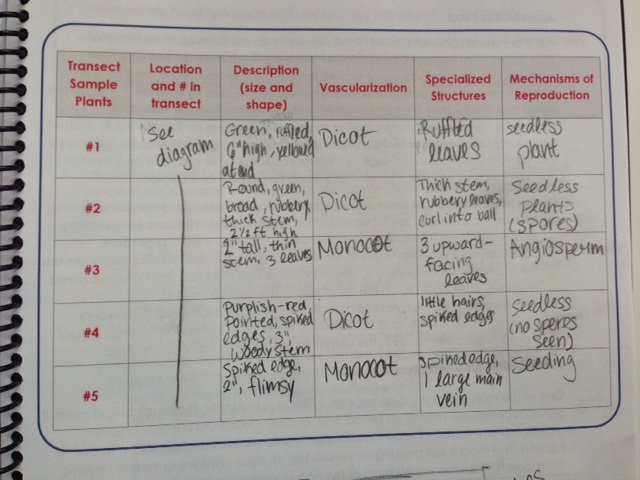 Transect Sample Plants | Location and # in transect | Description (size and shape) | Vascularization | Specialized Structures | Mechanisms of Reproduction
#1
See
diagram
Green, ruffled,
6" high, yellowed
at end
Dicot
Ruffled
leaves
seedless
plant
#2
Round, green,
broad, rubbery,
thick stem,
2 1/2 ft high
Dicot
Thick stem,
rubbery leaves,
curl into ball
Seedless
plants
(spores)
#3
2" tall, thin
stem, 3 leaves
Monocot
3 upward-
facing
leaves
Angiosperm
#4
Purplish-red
pointed, spiked
edges, 3",
woody stem
Dicot
little hairs,
spiked edges
Seedless
(no spores
seen)
#5
Spiked edge,
2", flimsy
Monocot
spiked edge,
1 large main
vein
Seeding